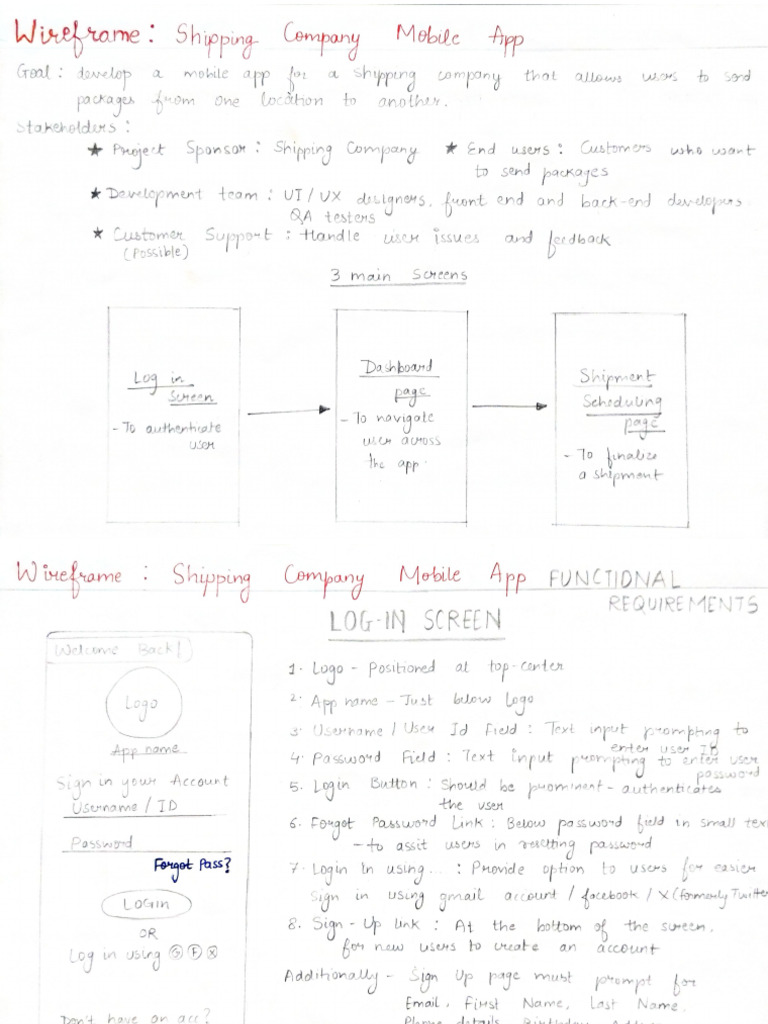 Wireframe: Shipping Company Mobile App
Goal: develop a mobile app for a shipping company that allows users to send
packages from one location to another.
Stakeholders:
★ Project Sponsor: Shipping Company ★ End users: Customers who want
to send packages
★ Development team: UI/UX designers, front end and back-end developers
QA testers
★ Customer Support: Handle user issues and feedback
(Possible)
3 main screens
Log in
Screen
- To authenticate
user
Dashboard
page
- To navigate
user across
the app.
Shipment
Scheduling
page
- To finalize
a shipment
Wireframe: Shipping Company Mobile App FUNCTIONAL
REQUIREMENTS
LOG-IN SCREEN
Welcome Back!
Logo
App name
Sign in your Account
Username / ID
Password
Forgot Pass?
LOGIN
OR
Log in using G F X
Don't have an acc?
1. Logo - Positioned at top-center
2. App name - Just below Logo
3. Username / User Id Field: Text input prompting to
enter user ID
4. Password Field: Text input prompting to enter user
password
5. Login Button: Should be prominent - authenticates
the user
6. Forgot Password Link: Below password field in small text
- to assit users in resetting password
7. Login In using...: Provide option to users for easier
Sign in using gmail account / facebook / X (formerly Twitter
8. Sign-Up link: At the bottom of the screen,
for new users to create an account
Additionally - Sign Up page must prompt for
Email, First Name, Last Name,
Phone details, Birthday, Address